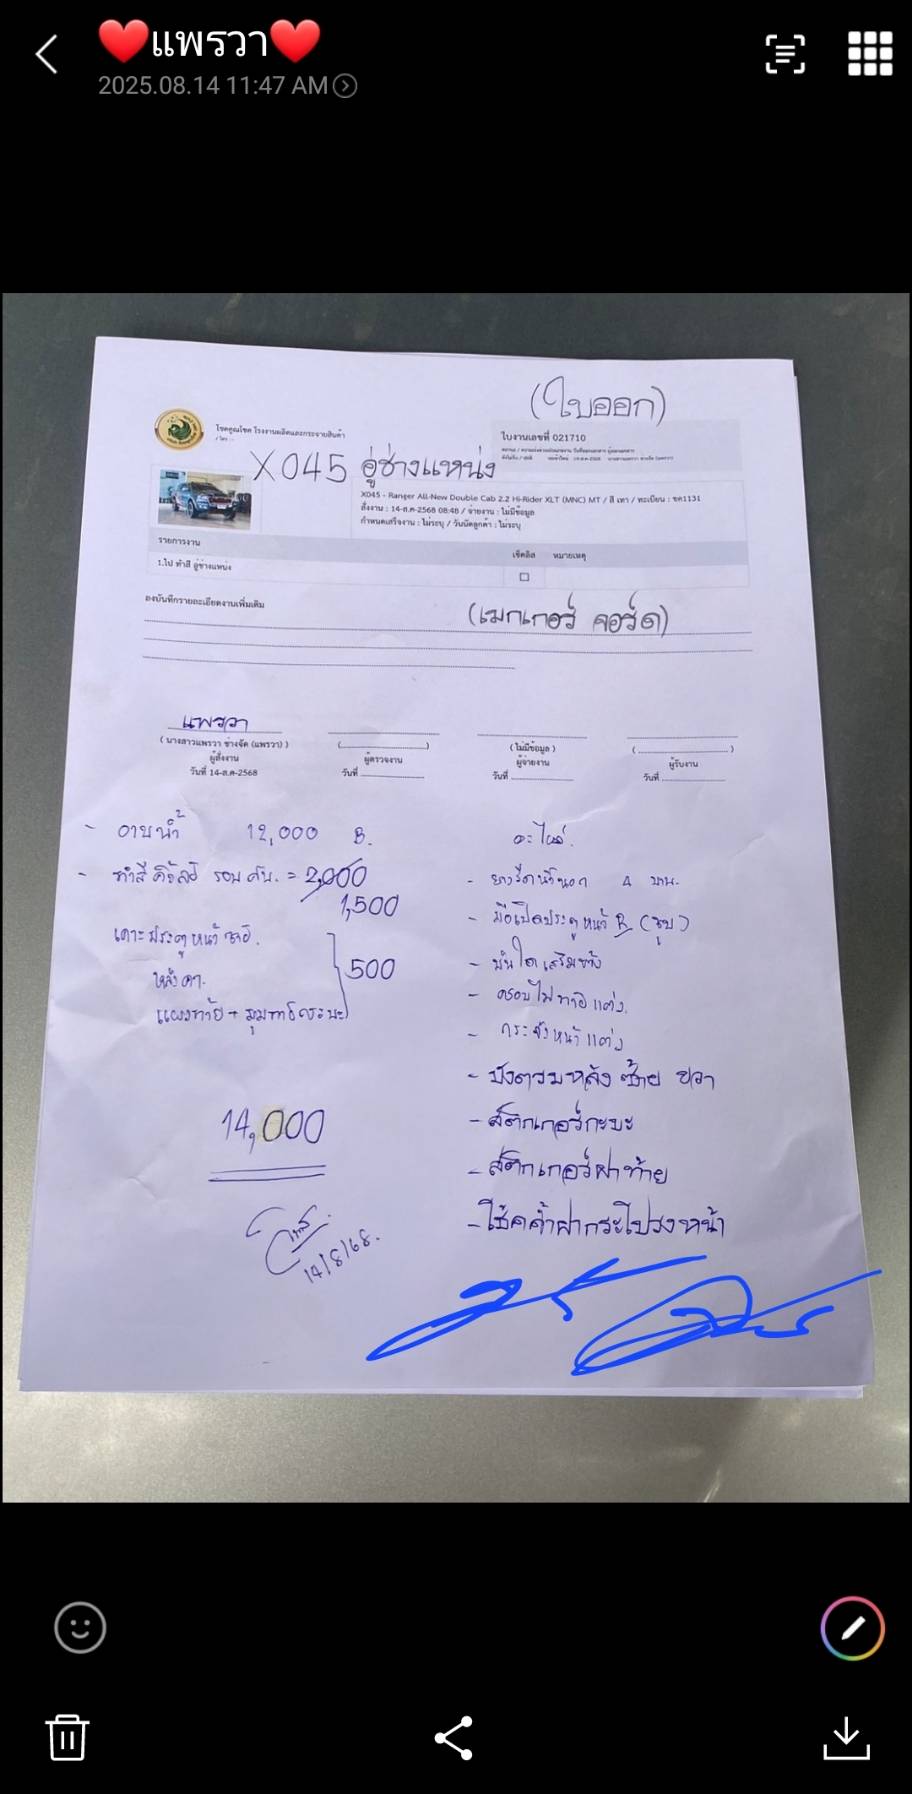 ❤️แพรวา❤️
2025.08.14 11:47 AM
(ใบออก)
โชคคูณโชค โรงงานผลิตและกระจายสินค้า
ใบงานเลขที่ 021710
X045 อู่ช่างแหน่ง
X045 - Ranger All-New Double Cab 2.2 Hi-Rider XLT (MNC) MT / สี เทา / ทะเบียน : ขค1131
สั่งงาน : 14-ส.ค-2568 08:48 / จ่ายงาน : ไม่มีข้อมูล
กำหนดเสร็จงาน : ไม่ระบุ / วันนัดลูกค้า : ไม่ระบุ
รายการงาน เช็คลิส หมายเหตุ
1.ไป ทำสี อู่ช่างแหน่ง
ลงบันทึกรายละเอียดงานเพิ่มเติม
(เมกเกอร์ จอร์ด)
แพรวา
( นางสาวแพรวา ช่างจัด (แพรวา) ) (ไม่มีข้อมูล )
ผู้สั่งงาน ผู้ตรวจงาน ผู้จ่ายงาน ผู้รับงาน
วันที่ 14-ส.ค-2568 วันที่ วันที่ วันที่
- อาบน้ำ 12,000 B.
- ทำสี คิ้วล้อ รอบคัน. = 2,000
1,500
เคาะประตูหน้า ซ้าย.
หลังคา.
500
14,000
14/8/68.
อะไหล่.
- ยางรีดน้ำนอก 4 บาน.
- มือเปิดประตูหน้า R (ชุบ)
- บันไดเสริมข้าง
- ครอบไฟท้ายแต่ง.
- กระจังหน้าแต่ง
- บังตรมหลัง ซ้าย ขวา
- สติกเกอร์กะบะ
- สติกเกอร์ฝาท้าย
- โช้คค้ำฝากระโปรงหน้า